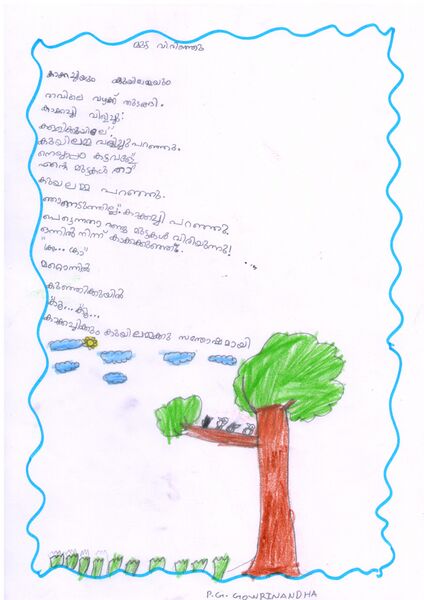 മുട്ട വിരിഞ്ഞു
കാക്കച്ചിയും കുയിലമ്മയും
രാവിലെ വഴക്ക് തുടങ്ങി.
കാക്കച്ചി വിളിച്ചു:
കള്ളിക്കുയിലേ
കുയിലമ്മ വിളിച്ചു പറഞ്ഞു.
എന്റെ മുട്ടകൾ താ
കുയിലമ്മ പറഞ്ഞു.
കാക്കച്ചി പറഞ്ഞു
പെട്ടെന്നതാ രണ്ടു മുട്ടകൾ വിരിയുന്നു!
ഒന്നിൽ നിന്ന് കാക്കക്കുഞ്ഞ്.
"കാ... കാ"
മറ്റൊന്നിൽ
കുഞ്ഞിക്കുയിൽ
കൂ... കൂ...
കാക്കച്ചിക്കും കുയിലമ്മക്കും സന്തോഷമായി
P.G. GOWRINANDHA